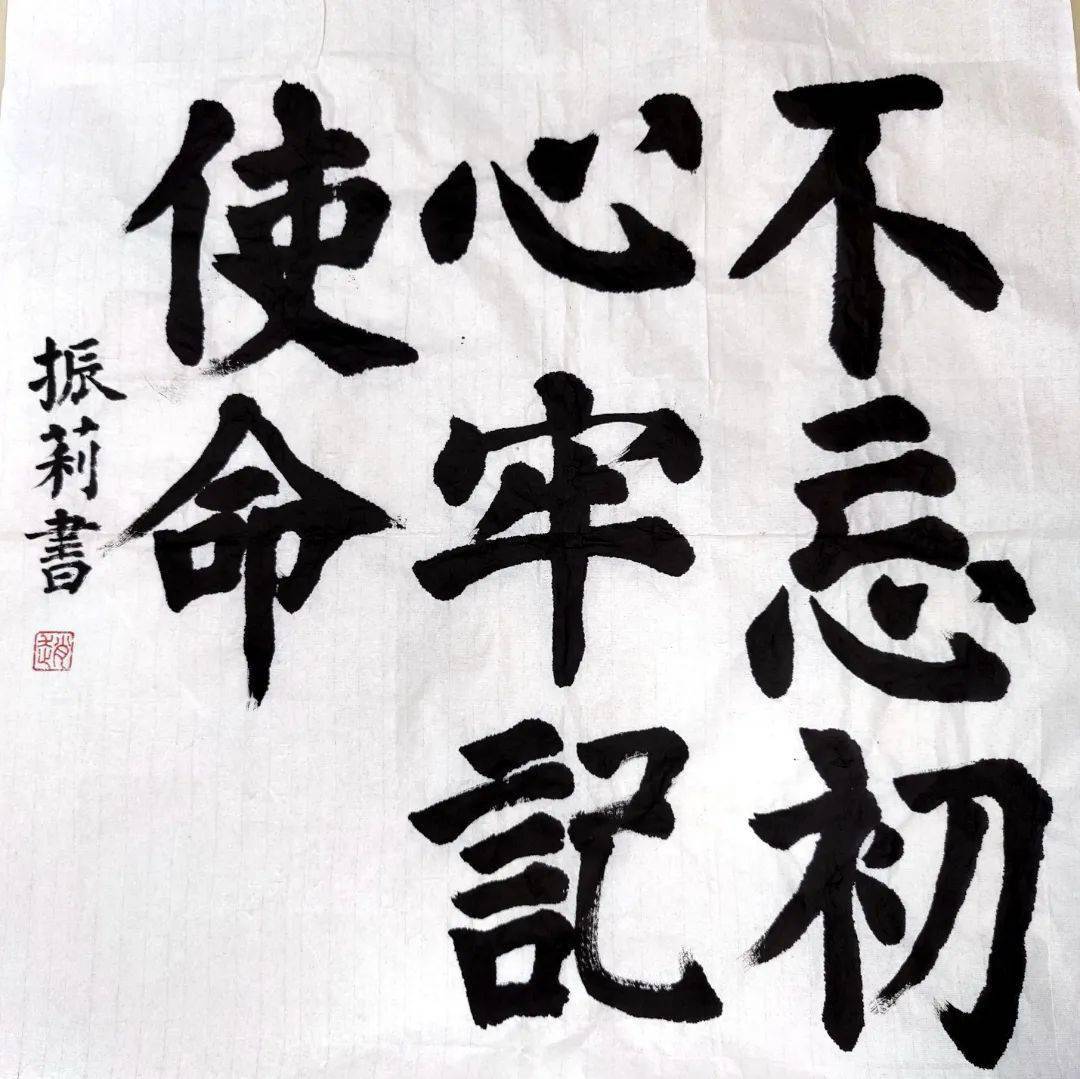 不忘初
心牢記
使命
振莉書
趙